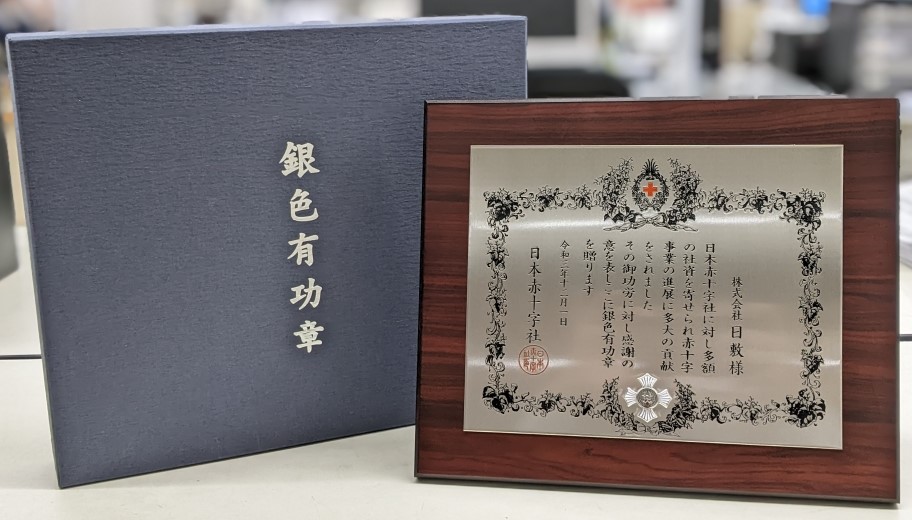 銀色有功章
株式会社 日敷様
日本赤十字社に対し多額
の社資を寄せられ赤十字
事業の進展に多大の貢献
をされました
その御功労に対し感謝の
意を表しここに銀色有功章
を贈ります
令和三年十二月一日
日本赤十字社